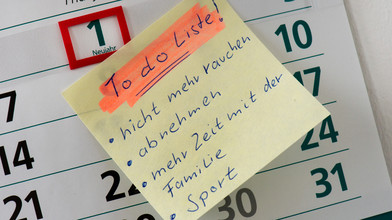 1
Neujahr
To do Liste!
• nicht mehr rauchen
• abnehmen
• mehr Zeit mit der
Familie
• Sport
3
10
7
17
14
24
21
22
31
28
30